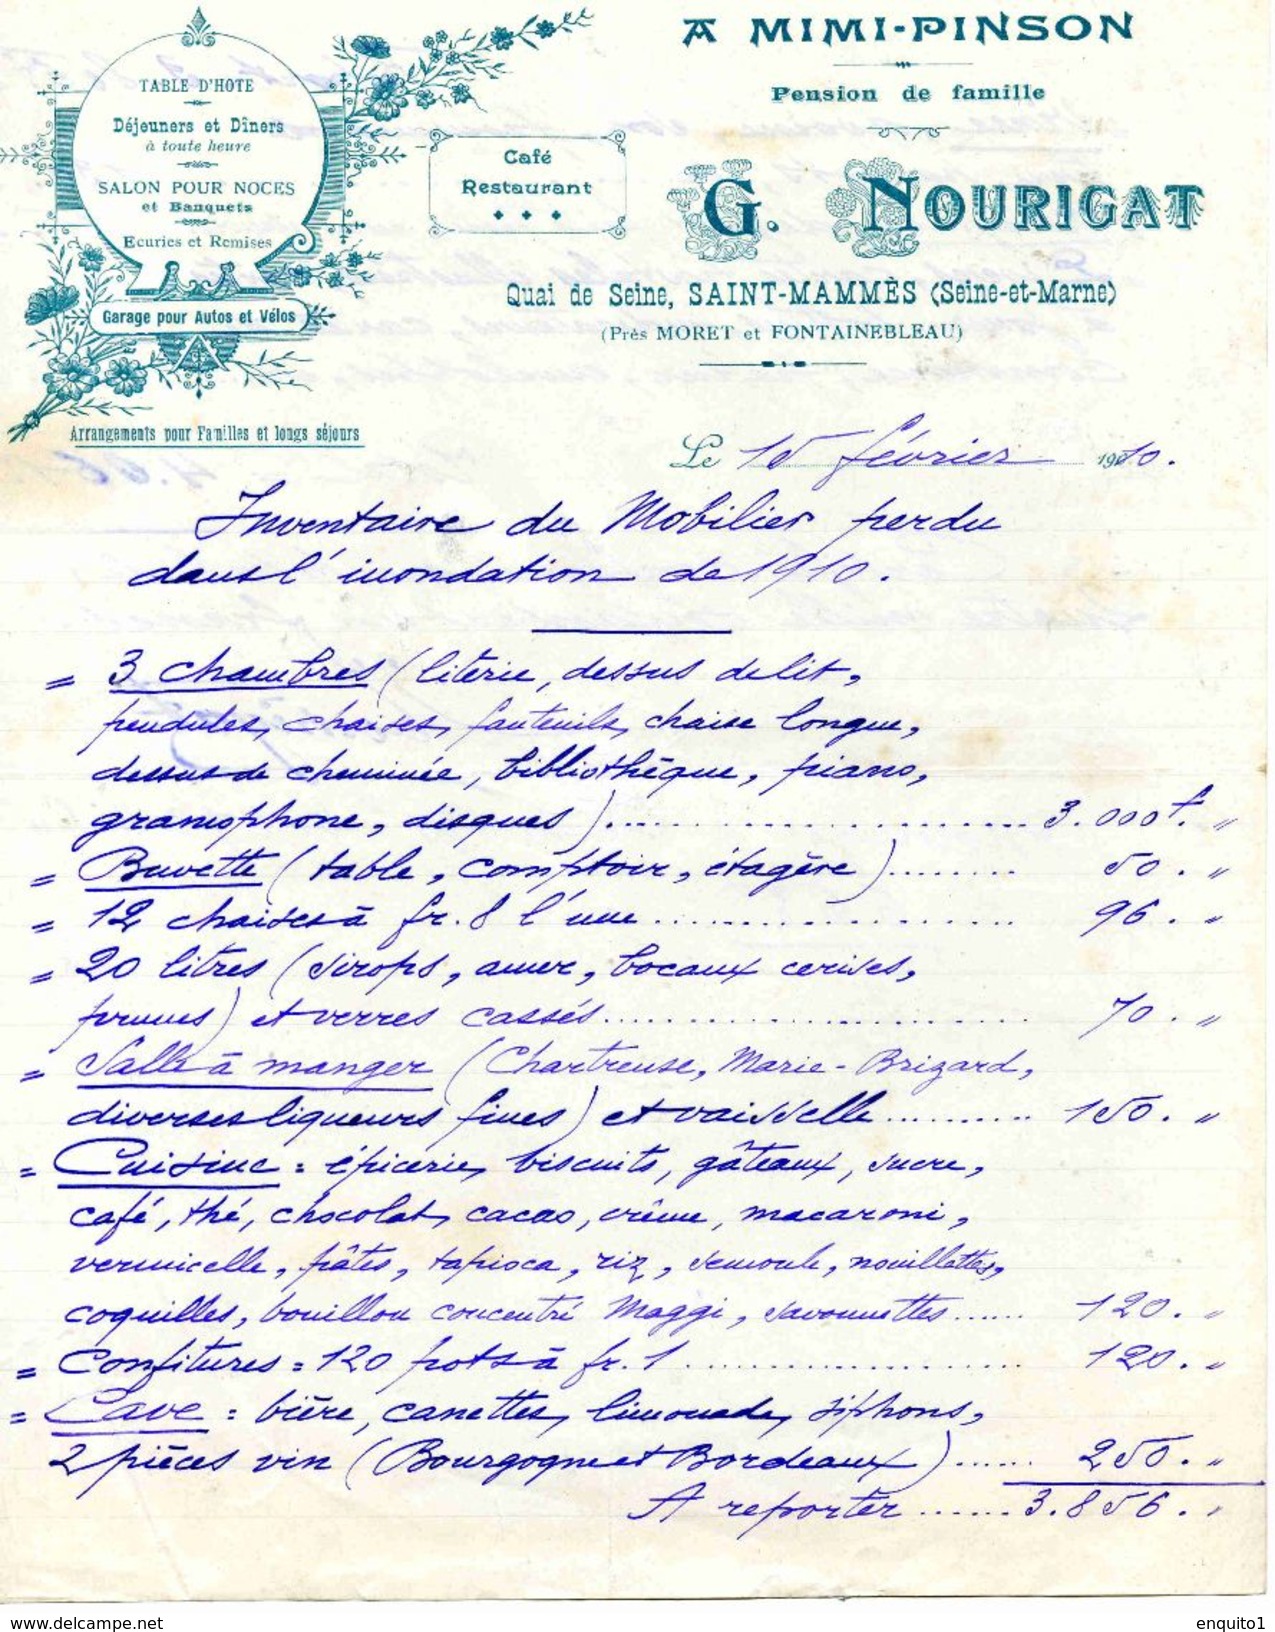 A MIMI-PINSON
Pension de famille
TABLE D'HOTE
Déjeuners et Dîners
à toute heure
SALON POUR NOCES
et Banquets
Ecuries et Remises
Garage pour Autos et Vélos
Arrangements pour Familles et longs séjours
Café
Restaurant
G. NOURIGAT
Quai de Seine, SAINT-MAMMÈS (Seine-et-Marne)
(Près MORET et FONTAINEBLEAU)
Le 15 février 1910.
Inventaire du Mobilier perdu
dans l'inondation de 1910.
= 3 chambres (literie, dessus de lit,
pendules, chaises, fauteuils, chaise longue,
dessus de cheminée, bibliothèque, piano,
gramophone, disques) ........ 3.000f. "
= Buvette (table, comptoir, étagère) ........ 50. "
= 12 chaises à fr. 8 l'une ........ 96. "
= 20 litres (sirops, amer, bocaux cerises,
prunes) et verres cassés ........ 70. "
= Salle à manger (Chartreuse, Marie-Brizard,
diverses liqueurs fines) et vaisselle ........ 150. "
= Cuisine = épicerie, biscuits, gâteaux, sucre,
café, thé, chocolat, cacao, crème, macaroni,
vermicelle, pâtes, tapioca, riz, semoule, nouillettes,
coquilles, bouillon concentré Maggi, savonnettes ...... 120. "
= Confitures = 120 pots à fr. 1 ........ 120. "
= Cave = bière, canettes, limonade, siphons,
2 pièces vin (Bourgogne et Bordeaux) ...... 250. "
A reporter ...... 3.856. "
www.delcampe.net
enquito1